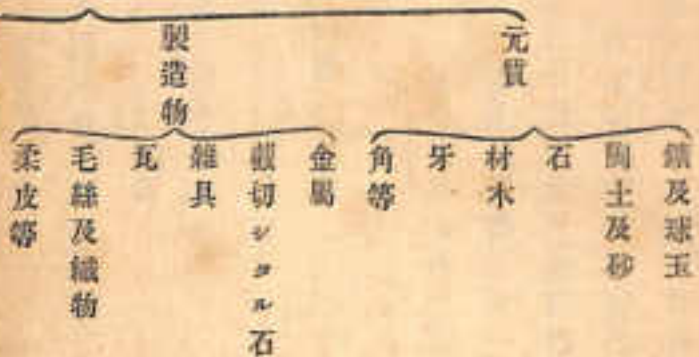 元質
鑛及球玉
陶土及砂
石
材木
牙
角等
製造物
金屬
截切シタル石
雜具
瓦
毛絲及織物
柔皮等